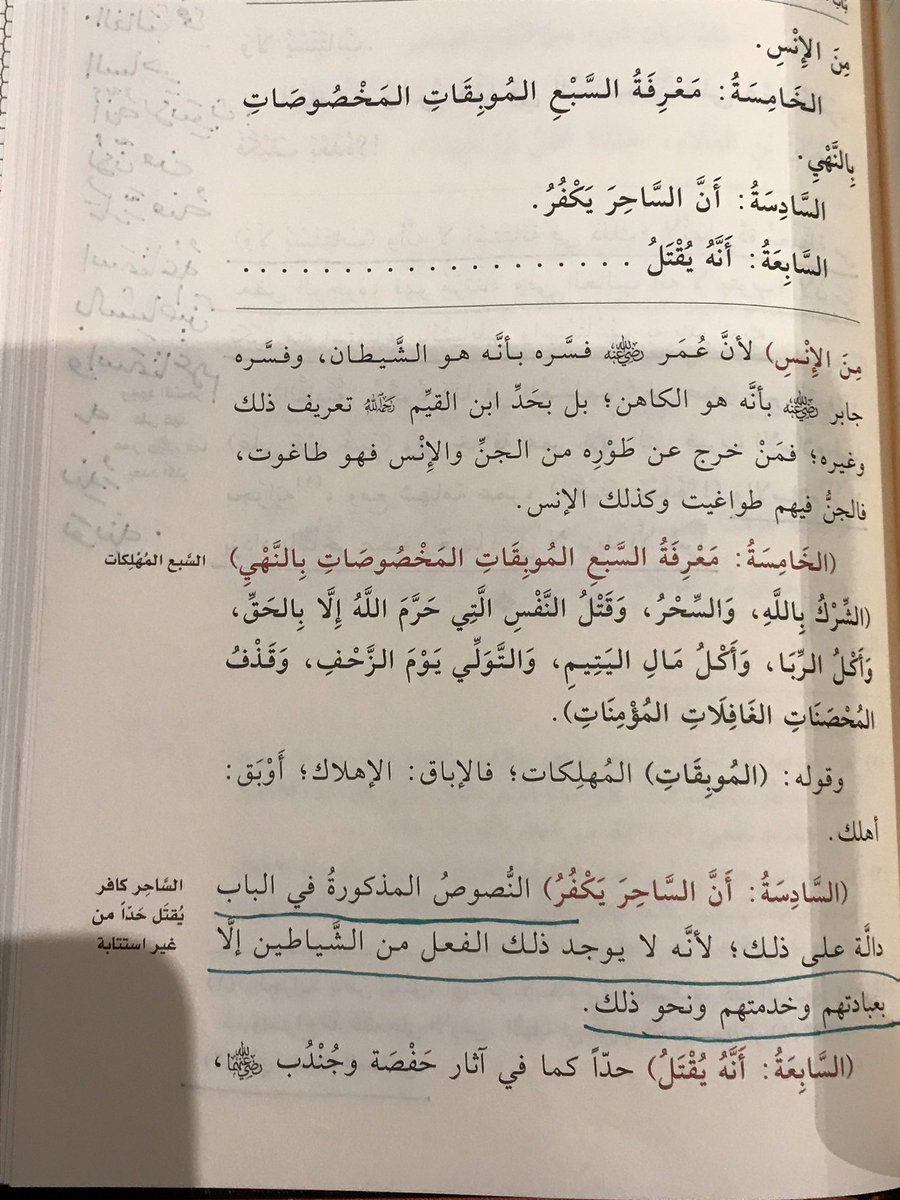 مِنَ الإِنْسِ.
الخَامِسَةُ: مَعْرِفَةُ السَّبْعِ المُوبِقَاتِ المَخْصُوصَاتِ
بِالنَّهْيِ.
السَّادِسَةُ: أَنَّ السَّاحِرَ يَكْفُرُ.
السَّابِعَةُ: أَنَّهُ يُقْتَلُ . . . . . . . . . . . . . . . . . . .
مِنَ الإِنْسِ) لأنَّ عُمَر رضي الله عنه فسَّره بأنَّه هو الشَّيطان، وفسَّره
جابر رضي الله عنه بأنَّه هو الكاهن؛ بل بحَدِّ ابن القيِّم رحمه الله تعريف ذلك
وغيره؛ فمَنْ خرج عن طَوْرِه من الجنِّ والإنْس فهو طاغوت،
فالجنُّ فيهم طواغيت وكذلك الإنس.
(الخَامِسَةُ: مَعْرِفَةُ السَّبْعِ المُوبِقَاتِ المَخْصُوصَاتِ بِالنَّهْيِ)
السَّبع المُهْلِكات
(الشِّرْكُ بِاللَّهِ، وَالسِّحْرُ، وَقَتْلُ النَّفْسِ الَّتِي حَرَّمَ اللَّهُ إِلَّا بِالحَقِّ،
وَأَكْلُ الرِّبَا، وَأَكْلُ مَالِ اليَتِيمِ، وَالتَّوَلِّي يَوْمَ الزَّحْفِ، وَقَذْفُ
المُحْصَنَاتِ الغَافِلَاتِ المُؤْمِنَاتِ).
وقوله: (المُوبِقَاتِ) المُهلِكات؛ فالإباق: الإهلاك؛ أَوْبَق:
أهلك.
(السَّادِسَةُ: أَنَّ السَّاحِرَ يَكْفُرُ) النُّصوصُ المذكورةُ في الباب
دالَّة على ذلك؛ لأنَّه لا يوجد ذلك الفعل من الشَّياطين إلَّا
بعبادتهم وخدمتهم ونحو ذلك.
السَّاحِر كافر
يُقتَل حَدّاً من
غير استتابة
(السَّابِعَةُ: أَنَّهُ يُقْتَلُ) حدّاً كما في آثار حَفْصَة وجُنْدُب رضي الله عنهما،